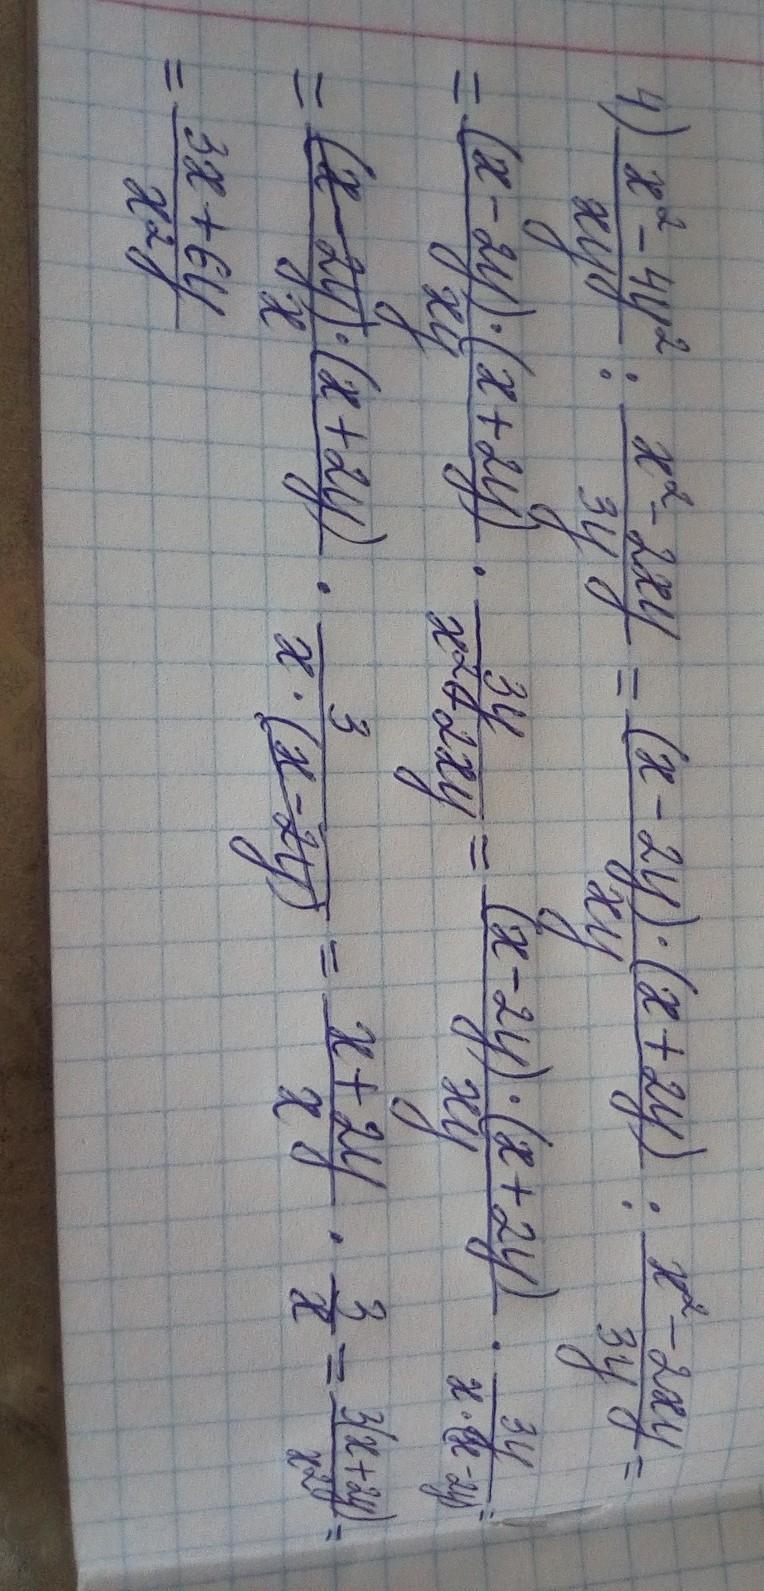 4) (x² - 4y²)/(xy) : (x² - 2xy)/(3y) = ((x - 2y)·(x + 2y))/(xy) : (x² - 2xy)/(3y) =
= ((x - 2y)·(x + 2y))/(xy) · (3y)/(x² - 2xy) = ((x - 2y)·(x + 2y))/(xy) · (3y)/(x·(x - 2y)) =
= ((x - 2y)·(x + 2y))/(x) · 3/(x·(x - 2y)) = (x + 2y)/x · 3/x = (3(x + 2y))/(x²) =
= (3x + 6y)/(x²)